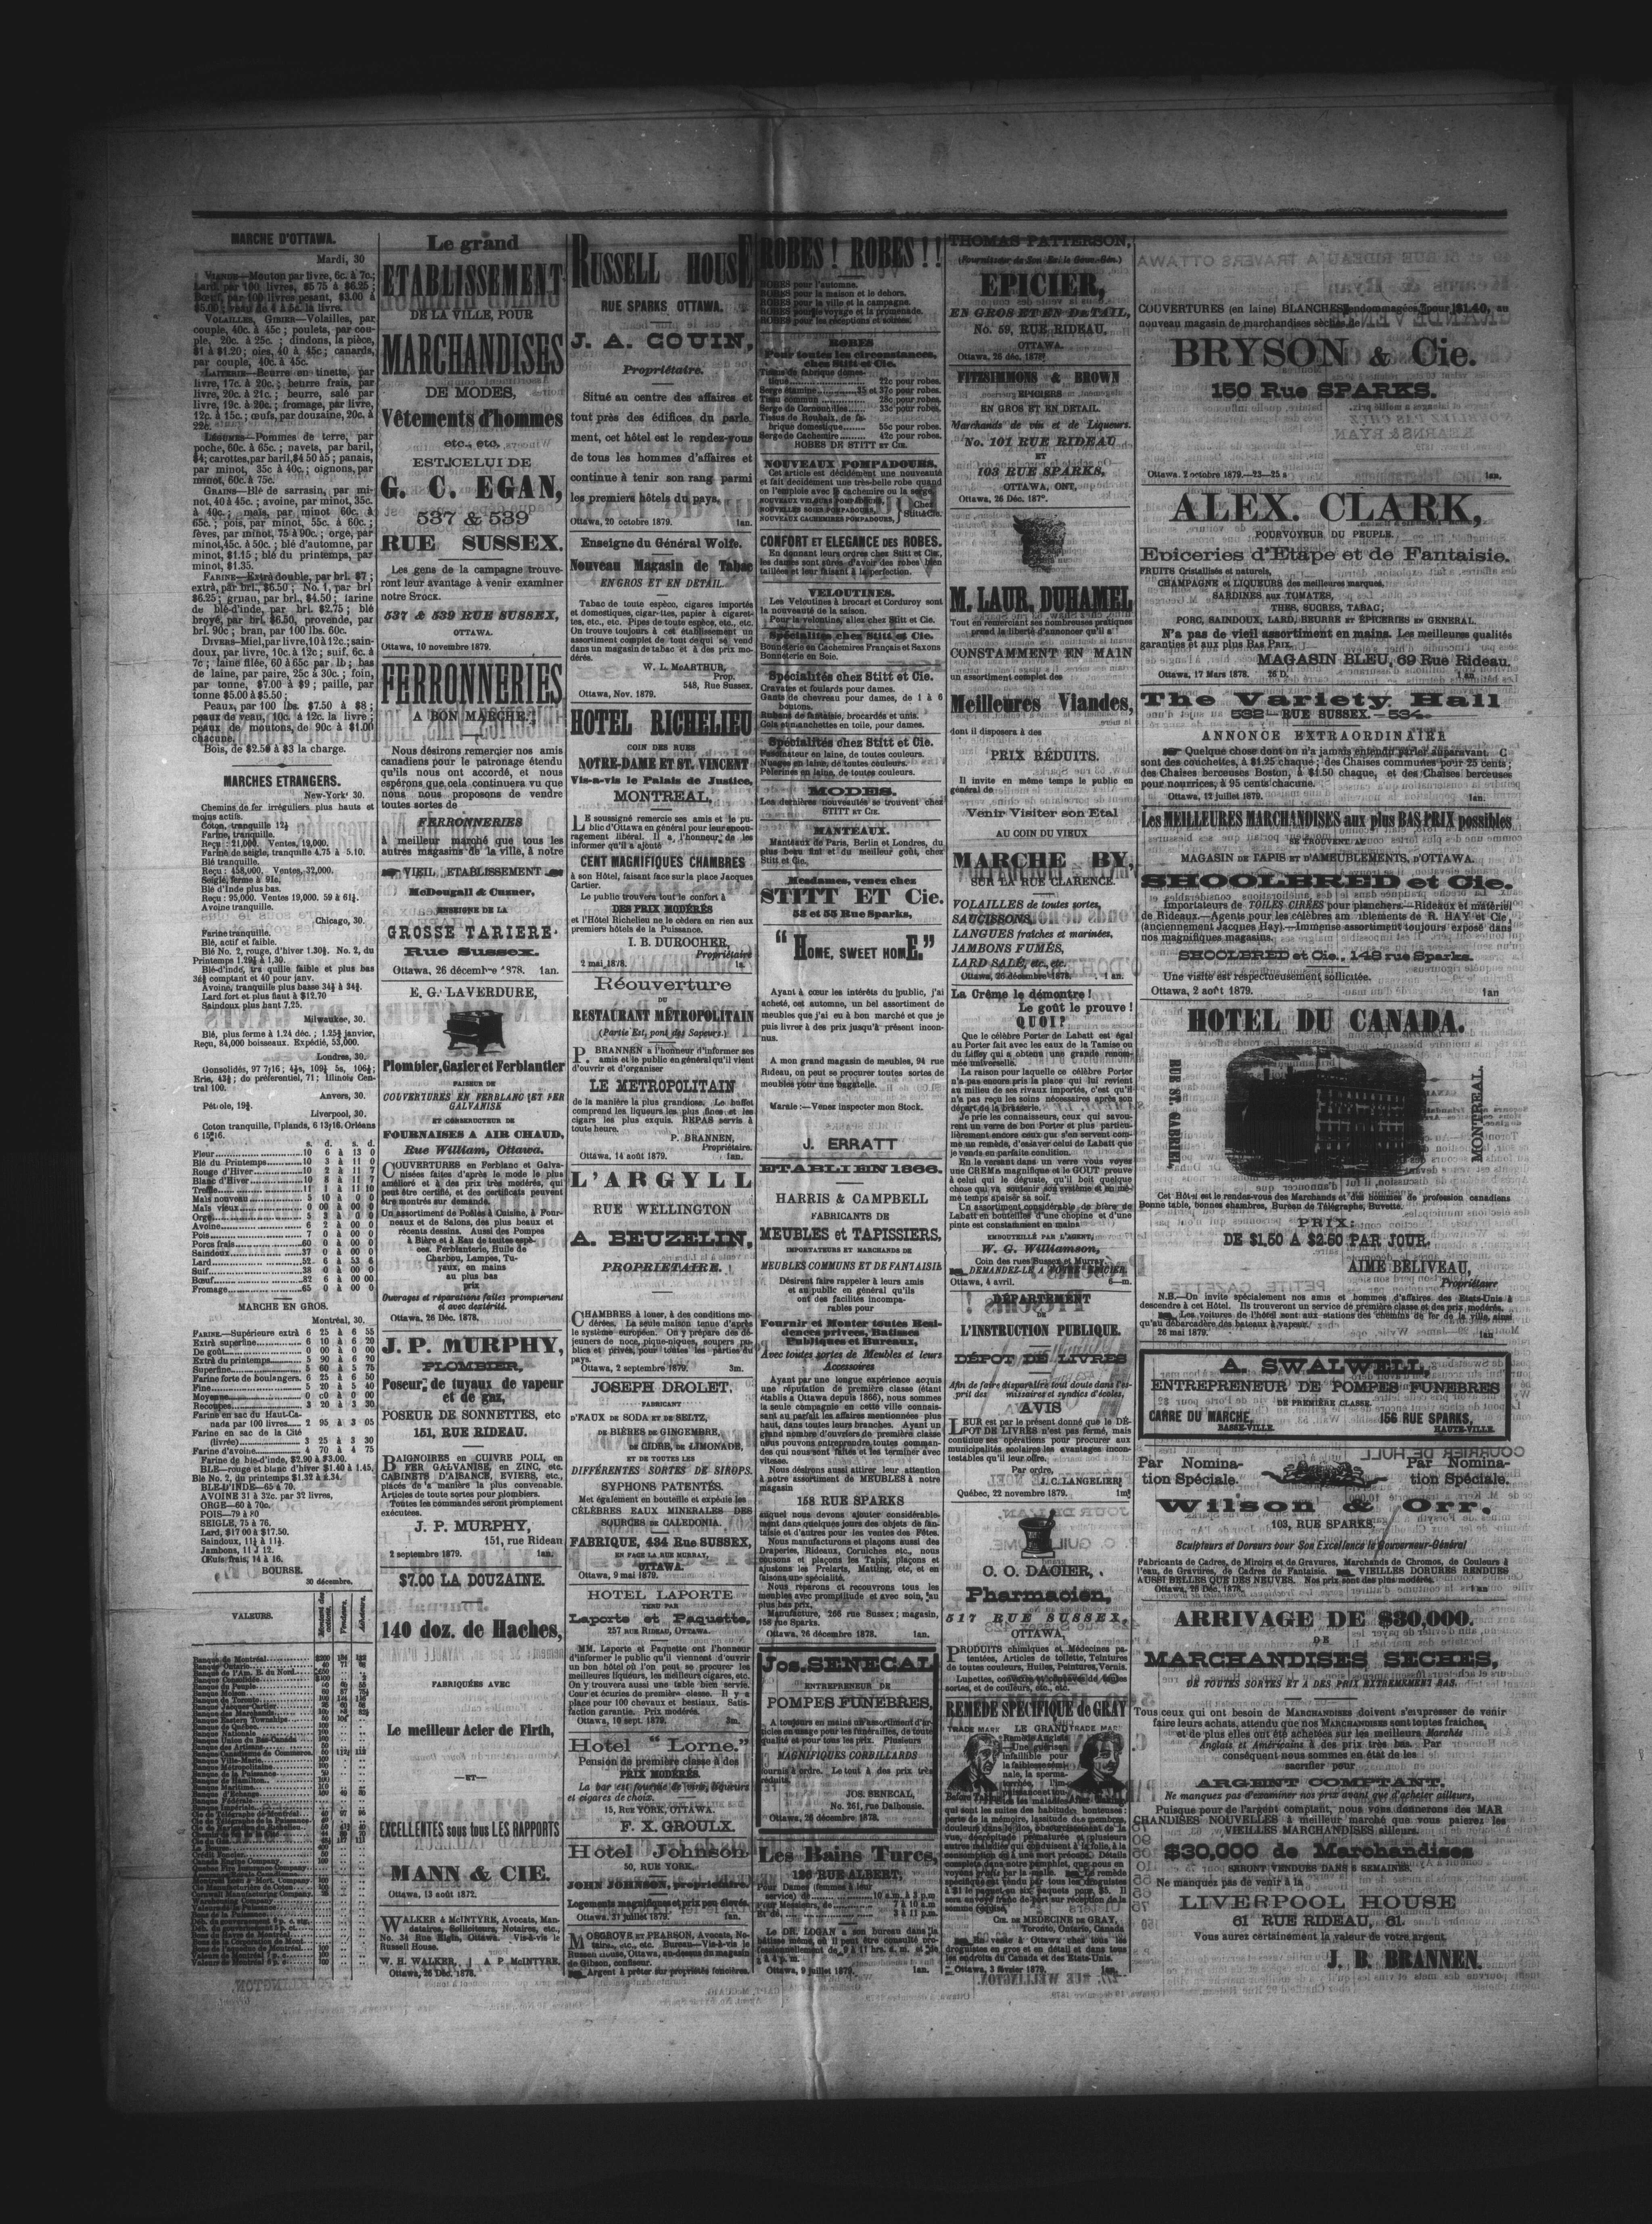 MARCHE D'OTTAWA.
Mardi, 30
VIANDE—Mouton par livre, 6c. à 7c.;
Lard par 100 livres, $5 75 à $6.25;
Bœuf, par 100 livres pesant, $3.00 à
$5.00; veau de 4 à 5c. la livre.
VOLAILLES, GIBIER—Volailles, par
couple, 40c. à 45c; poulets, par cou-
ple, 20c. à 25c.; dindons, la pièce,
$1 à $1.20; oies, 40 à 45c; canards,
par couple, 40c. à 45c.
LAITERIE—Beurre en tinette, par
livre, 17c. à 20c.; beurre frais, par
livre, 20c. à 21c.; beurre, salé par
livre, 19c. à 20c.; fromage, par livre,
12c. à 15c.; œufs, par douzaine, 20c. à
22c.
LÉGUMES—Pommes de terre, par
poche, 60c. à 65c.; navets, par baril,
$4; carottes, par baril, $4 50 à 5; panais,
par minot, 35c à 40c.; oignons, par
minot, 60c. à 75c.
GRAINS—Blé de sarrasin, par mi-
not, 40 à 45c.; avoine, par minot, 35c.
à 40c.; maïs, par minot 60c. à
65c.; pois, par minot, 55c. à 60c.;
fèves, par minot, 75 à 90c.; orge, par
minot, 45c. à 50c.; blé d'automne, par
minot, $1.15; blé du printemps, par
minot, $1.35.
FARINE—Extra double, par brl. $7;
extra, par brl., $6.50; No. 1, par brl
$6.25; gruau, par brl., $4.50; farine
de blé-d'inde, par brl. $2.75; blé
broyé, par brl. $6.50, provende, par
brl. 90c; bran, par 100 lbs. 60c.
DIVERS—Miel, par livre, 10 à 12c.; sain-
doux, par livre, 10c. à 12c; suif, 6c. à
7c; laine filée, 60 à 65c par lb; bas
de laine, par paire, 25c à 30c.; foin,
par tonne, $7.00 à $9; paille, par
tonne $5.00 à $5.50;
Peaux, par 100 lbs. $7.50 à $8;
peaux de veau, 10c. à 12c. la livre;
peaux de moutons, de 90c à $1.00
chacune.
Bois, de $2.50 à $3 la charge.
MARCHES ETRANGERS.
New-York 30.
Chemins de fer irréguliers plus hauts et
moins actifs.
Coton, tranquille 12¼
Farine, tranquille.
Reçu: 21,000. Ventes, 19,000.
Farine de seigle, tranquille 4.75 à 5.10.
Blé tranquille.
Reçu: 458,000. Ventes, 32,000.
Seigle, ferme à 91c.
Blé d'Inde plus bas.
Reçu: 95,000. Ventes 19,000. 59 à 61½.
Avoine tranquille.
Chicago, 30.
Farine tranquille.
Blé, actif et faible.
Blé No. 2, rouge, d'hiver 1.30½. No. 2, du
Printemps 1.29½ à 1,30.
Blé-d'inde, tranquille faible et plus bas
comptant et 40 pour janv.
Avoine, tranquille plus basse 34½ à 34¾.
Lard fort et plus haut à $12.70
Saindoux plus haut 7.25.
Milwaukee, 30.
Blé, plus ferme à 1.24 déc.; 1.25½ janvier,
Reçu, 84,000 boisseaux. Expédié, 53,000.
Londres, 30.
Consolidés, 97 7/16; 4½s, 109¼ 5s, 106½;
Erie, 43½; do préférentiel, 71; Illinois Cen-
tral 100.
Anvers, 30.
Pétrole, 19½.
Liverpool, 30.
Coton tranquille, Uplands, 6 13/16. Orléans
6 15/16.
s. d. s. d.
Fleur 10 6 à 13 0
Blé du Printemps 10 3 à 11 0
Rouge d'Hiver 10 2 à 11 7
Blanc d'Hiver 10 8 à 11 7
Treffle 11 1 à 11 10
Maïs nouveau 5 10 à 0 0
Maïs vieux 0 00 à 00 0
Orge 5 3 à 0 0
Avoine 6 2 à 00 0
Pois 7 0 à 00 0
Porcs frais 60 0 à 00 0
Saindoux 37 0 à 00 0
Lard 52 6 à 53 6
Suif 38 0 à 00 0
Bœuf 82 6 à 00 00
Fromage 65 0 à 00 0
MARCHE EN GROS.
Montréal, 30.
FARINE.—Supérieure extra 6 25 à 6 55
Extra superfine 6 10 à 6 20
De goût 0 00 à 00 00
Extra du printemps 5 90 à 6 20
Superfine 5 60 à 5 75
Farine forte de boulangers. 6 25 à 6 50
Fine 5 20 à 5 40
Moyenne 0 00 à 0 00
Recoupes 3 20 à 3 30
Farine en sac du Haut-Ca-
nada par 100 livres 2 95 à 3 05
Farine en sac de la Cité
(livrée) 3 25 à 3 30
Farine d'avoine 4 70 à 4 75
Farine de ble-d'inde, $2.90 à $3.00.
BLE—rouge et blanc d'hiver $1.40 à 1.45,
Blé No. 2, du printemps $1.32 à 1.34.
BLE-D'INDE—65 à 70.
AVOINE 31 à 32c. par 32 livres,
ORGE—60 à 70c.
POIS—79 à 80
SEIGLE, 75 à 76.
Lard, $17 00 à $17.50.
Saindoux, 11¼ à 11½.
Jambons, 11 à 12.
Œufs frais, 14 à 16.
BOURSE.
30 décembre.
VALEURS.
Banque de Montréal
Banque Ontario
Banque du Peuple
Banque Molson
Banque de Toronto
Banque Jacques-Cartier
Banque des Marchands
Banque Eastern Townships
Banque de Québec
Banque Nationale
Banque Union du Bas-Canada
Banque Canadienne de Commerce
Banque Ville-Marie
Banque Métropolitaine
Banque de la Puissance
Banque de Hamilton
Banque Maritime
Banque d'Echange
Banque Fédérale
Banque Impériale
Le grand
ETABLISSEMENT
DE LA VILLE, POUR
MARCHANDISES
DE MODES,
Vêtements d'hommes
etc., etc,
EST CELUI DE
G. C. EGAN,
537 & 539
RUE SUSSEX.
Les gens de la campagne trouve-
ront leur avantage à venir examiner
notre STOCK.
537 & 539 RUE SUSSEX,
OTTAWA.
Ottawa, 10 novembre 1879.
FERRONNERIES
A BON MARCHE.
Nous désirons remercier nos amis
canadiens pour le patronage étendu
qu'ils nous ont accordé, et nous
espérons que cela continuera vu que
nous nous proposons de vendre
toutes sortes de
FERRONNERIES
à meilleur marché que tous les
autres magasins de la ville, à notre
VIEIL ETABLISSEMENT
McDougall & Cuzner,
ENSEIGNE DE LA
GROSSE TARIERE.
Rue Sussex.
Ottawa, 26 décembre 1878. 1an.
E. G. LAVERDURE,
Plombier, Gazier et Ferblantier
FAISEUR DE
COUVERTURES EN FERBLANC ET FER
GALVANISÉ
ET CONSTRUCTEUR DE
FOURNAISES A AIR CHAUD,
Rue William, Ottawa.
COUVERTURES en Ferblanc et Galva-
nisées faites d'après le mode le plus
amélioré et à des prix très modérés, qui
peut être certifié, et des certificats peuvent
être montrés sur demande.
Un assortiment de Poêles à Cuisine, à Four-
neaux et de Salons, des plus beaux et
récents dessins. Aussi des Pompes
à Bière et à Eau de toutes espè-
ces. Ferblanterie, Huile de
Charbon, Lampes, Tu-
yaux, en mains
au plus bas
prix
Ouvrages et réparations faites promptement
et avec dextérité.
Ottawa, 26 Déc. 1878.
J. P. MURPHY,
PLOMBIER,
Poseur de tuyaux de vapeur
et de gaz,
POSEUR DE SONNETTES, etc
151, RUE RIDEAU.
BAIGNOIRES en CUIVRE POLI, en
FER GALVANISE, en ZINC, etc.
CABINETS D'AISANCE, EVIERS, etc.,
placés de a manière la plus convenable.
Articles de toute sortes pour plombiers.
Toutes les commandes seront promptement
exécutées.
J. P. MURPHY,
151, rue Rideau
2 septembre 1879. 1an.
$7.00 LA DOUZAINE.
140 doz. de Haches,
FABRIQUÉES AVEC
Le meilleur Acier de Firth,
—ET—
EXCELLENTES sous tous LES RAPPORTS
MANN & CIE.
Ottawa, 13 août 1872.
WALKER & McINTYRE, Avocats, Man-
dataires, Solliciteurs, Notaires, etc.,
No. 34 Rue Elgin, Ottawa. Vis-à-vis le
Russell House.
W. H. WALKER. A. P. McINTYRE.
Ottawa, 26 Déc. 1878.
RUSSELL HOUSE
RUE SPARKS OTTAWA.
J. A. GOUIN,
Propriétaire.
Situé au centre des affaires et
tout près des édifices du parle-
ment, cet hôtel est le rendez-vous
de tous les hommes d'affaires et
continue à tenir son rang parmi
les premiers hôtels du pays.
Ottawa, 20 octobre 1879. 1an.
Enseigne du Général Wolfe.
Nouveau Magasin de Tabac
EN GROS ET EN DETAIL.
Tabac de toute espèce, cigares importés
et domestiques, cigarettes, papier à cigaret-
tes, etc., etc. Pipes de toute espèce, etc., etc.
On trouve toujours à cet établissement un
assortiment complet de tout ce qui se vend
dans un magasin de tabac et à des prix mo-
dérés.
W. L. McARTHUR,
Prop.
548, Rue Sussex.
Ottawa, Nov. 1879.
HOTEL RICHELIEU
COIN DES RUES
NOTRE-DAME ET ST. VINCENT
Vis-a-vis le Palais de Justice,
MONTREAL.
LE soussigné remercie ses amis et le pu-
blic d'Ottawa en général pour leur encou-
ragement libéral. Il a l'honneur de les
informer qu'il a ajouté
CENT MAGNIFIQUES CHAMBRES
à son Hôtel, faisant face sur la place Jacques
Cartier.
Le public trouvera tout le confort à
DES PRIX MODÉRÉS
et l'Hôtel Richelieu ne le cèdera en rien aux
premiers hôtels de la Puissance.
I. B. DUROCHER,
Propriétaire
2 mai 1878. 1a.
Réouverture
DU
RESTAURANT MÉTROPOLITAIN
(Partie Est, pont des Sapeurs.)
P. BRANNEN a l'honneur d'informer ses
amis et le public en général qu'il vient
d'ouvrir et d'organiser
LE METROPOLITAIN
de la manière la plus grandiose. Le buffet
comprend les liqueurs les plus fines et les
cigars les plus exquis. REPAS servis à
toute heure.
P. BRANNEN,
Propriétaire.
Ottawa, 14 août 1879. 1an.
L'ARGYLL
RUE WELLINGTON
A. BEUZELIN,
PROPRIETAIRE.
CHAMBRES à louer, à des conditions mo-
dérées. La seule maison tenue d'après
le système européen. On y prépare des dé-
jeuners de noce, pique-niques, soupers pu-
blics et privés, pour toutes les parties du
pays.
Ottawa, 2 septembre 1879. 3m.
JOSEPH DROLET.
FABRICANT
D'EAUX DE SODA ET DE SELTZ,
DE BIÈRES DE GINGEMBRE,
DE CIDRE, DE LIMONADE,
ET DE TOUTES LES
DIFFÉRENTES SORTES DE SIROPS.
SYPHONS PATENTÉS.
Met également en bouteille et expédie les
CÉLÈBRES EAUX MINERALES DES
SOURCES DE CALEDONIA.
FABRIQUE, 434 Rue SUSSEX,
EN FACE LA RUE MURRAY,
OTTAWA.
Ottawa, 9 mai 1879. 1an.
HOTEL LAPORTE
TENU PAR
Laporte et Paquette,
257 RUE RIDEAU, OTTAWA.
MM. Laporte et Paquette ont l'honneur
d'informer le public qu'il viennent d'ouvrir
un bon hôtel où l'on peut se procurer les
meilleures liqueurs, les meilleurs cigares, etc.
On y trouvera aussi une table bien servie.
Cour et écuries de première classe. Il y a
place pour 100 chevaux et bestiaux. Satis-
faction garantie. Prix modérés.
Ottawa, 10 sept. 1879. 3m.
Hotel "Lorne."
Pension de première classe à des
PRIX MODÉRÉS.
La bar est fournie de vins, liqueurs
et cigares de choix.
15, RUE YORK, OTTAWA.
F. X. GROULX.
Hotel Johnson.
50, RUE YORK.
JOHN JOHNSON, propriétaire.
Logements magnifiques et prix peu élevés.
Ottawa, 31 juillet 1879. 1an.
MOSGROVE ET PEARSON, Avocats, No-
taires, etc., etc. Bureau—Vis-à-vis le
Russell House, Ottawa, au-dessus du magasin
de Gibson, confiseur.
Argent à prêter sur propriétés foncières.
ROBES! ROBES!!
ROBES pour l'automne.
ROBES pour la maison et le dehors.
ROBES pour la ville et la campagne.
ROBES pour le voyage et la promenade.
ROBES pour les réceptions et soirées.
ROBES
Pour toutes les circonstances,
chez Stitt et Cie.
Tissus de fabrique domes-
tique 22c pour robes.
Serge étamine 35 et 37c pour robes.
Tissu commun 28c pour robes.
Serge de Cornouailles 33c pour robes.
Tissus de Roubaix, de fa-
brique domestique 55c pour robes.
Serge de Cachemire 42c pour robes.
ROBES DE STITT ET CIE.
NOUVEAUX POMPADOURS,
Cet article est décidément une nouveauté
et fait décidément une très-belle robe quand
on l'emploie avec le cachemire ou la serge.
NOUVEAUX VELOURS POMPADOURS,
NOUVELLES SOIES POMPADOURS,
NOUVEAUX CACHEMIRES POMPADOURS,
Chez
Stitt & Cie.
CONFORT ET ELEGANCE DES ROBES.
En donnant leurs ordres chez Stitt et Cie,
les dames sont sûres d'avoir des robes bien
taillées et leur faisant à la perfection.
VELOUTINES.
Les Veloutines à brocart et Corduroy sont
la nouveauté de la saison.
Pour la veloutine, allez chez Stitt et Cie.
Spécialités chez Stitt et Cie.
Bonneterie en Cachemires Français et Saxons
Bonneterie en Soie.
Spécialités chez Stitt et Cie.
Cravates et foulards pour dames.
Gants de chevreau pour dames, de 1 à 6
boutons.
Rubans de fantaisie, brocardés et unis.
Cols et manchettes en toile, pour dames.
Spécialités chez Stitt et Cie.
Fascinateur en laine, de toutes couleurs.
Nuages en laine, de toutes couleurs.
Pèlerines en laine, de toutes couleurs.
MODES.
Les dernières nouveautés se trouvent chez
STITT ET CIE.
MANTEAUX.
Manteaux de Paris, Berlin et Londres, du
plus beau fini et du meilleur goût, chez
Stitt et Cie.
Mesdames, venez chez
STITT ET Cie.
53 et 55 Rue Sparks,
"HOME, SWEET HOME"
Ayant à cœur les intérêts du public, j'ai
acheté, cet automne, un bel assortiment de
meubles que j'ai eu à bon marché et que je
puis livrer à des prix jusqu'à présent incon-
nus.
A mon grand magasin de meubles, 94 rue
Rideau, on peut se procurer toutes sortes de
meubles pour une bagatelle.
Marais:—Venez inspecter mon Stock.
J. ERRATT
ETABLI EN 1866.
HARRIS & CAMPBELL
FABRICANTS DE
MEUBLES et TAPISSIERS,
IMPORTATEURS ET MARCHANDS DE
MEUBLES COMMUNS ET DE FANTAISIE
Désirent faire rappeler à leurs amis
et au public en général qu'ils
ont des facilités incompa-
rables pour
Fournir et Monter toutes Resi-
dences privees, Batisses
Publiques et Bureaux,
Avec toutes sortes de Meubles et leurs
Accessoires
Ayant par une longue expérience acquis
une réputation de première classe (étant
établis à Ottawa depuis 1866), nous sommes
la seule compagnie en cette ville connais-
sant au parfait les affaires mentionnées plus
haut, dans toutes leurs branches. Ayant un
grand nombre d'ouvriers de première classe
nous pouvons entreprendre toutes comman-
des qui nous sont faites et les terminer avec
vitesse.
Nous désirons aussi attirer leur attention
à notre assortiment de MEUBLES à notre
magasin
158 RUE SPARKS
auquel nous devons ajouter considérable-
ment dans quelques jours des objets de fan-
taisie et d'autres pour les ventes des Fêtes.
Nous manufacturons et plaçons aussi des
Draperies, Rideaux, Corniches etc., nous
cousons et plaçons les Tapis, plaçons et
ajustons les Prelarts, Matting, etc, et en
faisons une spécialité.
Nous réparons et recouvrons tous les
meubles avec promptitude et avec soin, au
plus bas prix.
Manufacture, 266 rue Sussex; magasin,
158 rue Sparks.
Ottawa, 26 décembre 1878. 1an.
Jos. SENECAL
ENTREPRENEUR DE
POMPES FUNEBRES,
A toujours en mains un assortiment d'ar-
ticles en usage pour les funérailles, de toute
qualité et pour tous les prix. Plusieurs
MAGNIFIQUES CORBILLARDS
fournis à ordre. Le tout à des prix très
réduits.
JOS. SENECAL,
No. 261, rue Dalhousie.
Ottawa, 26 décembre 1878.
Les Bains Turcs,
126 RUE ALBERT,
Pour Dames (femmes à leur
service) de 10 a.m. à 3 p.m
Pour Messieurs, de 7 à 10 a.m
Et de 3 à 11 p.m.
Le DR. LOGAN a son bureau dans la
bâtisse même où il peut être consulté pro-
fessionnellement de 9 à 11 hrs. a. m. et de
2 à 4 p. m.
Ottawa, 9 juillet 1879. 1an.
THOMAS PATTERSON,
(Fournisseur de Son Ex. le Gouv.-Gén.)
EPICIER,
EN GROS ET EN DETAIL,
No. 59, RUE RIDEAU,
OTTAWA.
Ottawa, 26 déc. 1878.
FITZSIMMONS & BROWN
EPICIERS
EN GROS ET EN DETAIL.
Marchands de vin et de Liqueurs.
No. 101 RUE RIDEAU
ET
108 RUE SPARKS,
OTTAWA, ONT,
Ottawa, 26 Déc. 187
M. LAUR. DUHAMEL
Tout en remerciant ses nombreuses pratiques
prend la liberté d'annoncer qu'il a
CONSTAMMENT EN MAIN
un assortiment complet des
Meilleures Viandes,
dont il disposera à des
PRIX RÉDUITS.
Il invite en même temps le public en
général de
Venir Visiter son Etal
AU COIN DU VIEUX
MARCHE BY,
SUR LA RUE CLARENCE.
VOLAILLES de toutes sortes,
SAUCISSONS,
LANGUES fraîches et marinées,
JAMBONS FUMÉS,
LARD SALÉ, etc., etc.
Ottawa, 26 décembre 1878. 1 an.
La Crême le démontre!
Le goût le prouve!
QUOI?
Que le célèbre Porter de Labatt est égal
au Porter fait avec les eaux de la Tamise ou
du Liffey qui a obtenu une grande renom-
mée universelle.
La raison pour laquelle ce célèbre Porter
n'a pas encore pris la place qui lui revient
au milieu de ses rivaux importés, c'est qu'il
n'a pas reçu les soins nécessaires après son
départ de la brasserie.
Je prie les connaisseurs, ceux qui savou-
rent un verre de bon Porter et plus particu-
lièrement encore ceux qui s'en servent com-
me un remède, d'essayer celui de Labatt que
je vends en parfaite condition.
En le versant dans un verre vous voyez
une CREMA magnifique et le GOUT prouve
à celui qui le déguste, qu'il boit quelque
chose qui va soutenir son système et en mê-
me temps apaiser sa soif.
Un assortiment considérable de bière de
Labatt en bouteilles d'une chopine et d'une
pinte est constamment en mains
EMBOUTEILLÉ PAR L'AGENT,
W. G. Williamson,
Coin des rues Sussex et Murray.
DEMANDEZ-LE A VOTRE EPICIER.
Ottawa, 4 avril. 6—m.
DÉPARTEMENT
DE
L'INSTRUCTION PUBLIQUE.
DÉPOT DE LIVRES
Afin de faire disparaître tout doute dans l'es-
prit des missaires et syndics d'écoles,
AVIS
LEUR est par le présent donné que le DÉ-
POT DE LIVRES n'est pas fermé, mais
continue ses opérations pour procurer aux
municipalités scolaires les avantages incon-
testables qu'il leur offre.
Par ordre,
J. C. LANGELIER
Québec, 22 novembre 1879. 1m
O. O. DACIER,
Pharmacien,
517 RUE SUSSEX,
OTTAWA,
PRODUITS chimiques et Médecines pa-
tentées, Articles de toilette, Teintures
de toutes couleurs, Huiles, Peintures, Vernis.
Lunettes, de toutes
sortes, et de couleurs, etc, etc.
REMEDE SPECIFIQUE de GRAY
TRADE MARK LE GRAND TRADE MARK
Remède Anglais
—Une guérison
infaillible pour
la faiblesse sémi-
nale, la sperma-
torrhée, l'im-
puissance et tou-
tes les maladies
qui sont les suites des habitudes honteuses:
perte de la mémoire, lassitude des membres,
douleur dans le dos, obscurcissement de la
vue, décrépitude prématurée et plusieurs
autres maladies qui conduisent à la folie, à la
consomption ou à une mort précoce. Détails
complets dans notre pamphlet, que nous en
voyons gratis par la malle. Le remède
spécifique est vendu par tous les droguistes
à $1 le paquet ou six paquets pour $5. Il
sera envoyé franc de port sur réception de la
somme requise.
CIE. DE MEDECINE DE GRAY,
Toronto, Ontario, Canada
En vente à Ottawa chez tous les
droguistes en gros et en détail et dans tous
les endroits du Canada et des Etats-Unis.
Ottawa, 3 février 1879. 1an.
COUVERTURES (en laine) BLANCHES endommagées, pour $1.40, au
nouveau magasin de marchandises sèches de
BRYSON & Cie.
150 Rue SPARKS.
Ottawa. 2 octobre 1879.—23—25 a 1an,
ALEX. CLARK,
POURVOYEUR DU PEUPLE.
Epiceries d'Etape et de Fantaisie.
FRUITS Cristallisés et naturels,
CHAMPAGNE et LIQUEURS des meilleures marques,
SARDINES aux TOMATES,
THES, SUCRES, TABAC;
PORC, SAINDOUX, LARD, BEURRE ET ÉPICERIES EN GENERAL.
N'a pas de vieil assortiment en mains. Les meilleures qualités
garanties et aux plus BAS PRIX.
MAGASIN BLEU, 69 Rue Rideau.
Ottawa, 17 Mars 1878. 26 D. 1 an
The Variety Hall
532—RUE SUSSEX.—534
ANNONCE EXTRAORDINAIRE
Quelque chose dont on n'a jamais entendu parler auparavant. C
sont des couchettes, à $1.25 chaque; des Chaises communes pour 25 cents;
des Chaises berceuses Boston, à $1.50 chaque, et des Chaises berceuses
pour nourrices, à 95 cents chacune.
Ottawa, 12 juillet 1879. 1an.
Les MEILLEURES MARCHANDISES aux plus BAS PRIX possibles
SE TROUVENT AU
MAGASIN DE TAPIS ET D'AMEUBLEMENTS, D'OTTAWA.
SHOOLBRED et Cie.
Importateurs de TOILES CIRÉES pour planchers.—Rideaux et matériel
de Rideaux.—Agents pour les célèbres am iblements de R. HAY et Cie,
(anciennement Jacques Hay).—Immense assortiment toujours exposé dans
nos magnifiques magasins.
SHOOLBRED et Cie., 148 rue Sparks.
Une visite est respectueusement sollicitée.
Ottawa, 2 août 1879. 1an
HOTEL DU CANADA.
RUE ST. GABRIEL,
MONTREAL.
Cet Hôtel est le rendez-vous des Marchands et des hommes de profession canadiens
Bonne table, bonnes chambres, Bureau de Télégraphe, Buvette.
PRIX:
DE $1,50 A $2.50 PAR JOUR.
AIME BELIVEAU,
Propriétaire
N.B.—On invite spécialement nos amis et hommes d'affaires des Etats-Unis à
descendre à cet Hôtel. Ils trouveront un service de première classe et des prix modérés.
Les voitures de l'hôtel sont aux stations des chemins de fer de la ville ainsi
qu'au débarcadère des bateaux à vapeur.
26 mai 1879. 1an
A. SWALWELL,
ENTREPRENEUR DE POMPES FUNEBRES
DE PREMIÈRE CLASSE.
CARRE DU MARCHE, 156 RUE SPARKS,
BASSE-VILLE. HAUTE-VILLE.
Par Nomina-
tion Spéciale.
Par Nomina-
tion Spéciale.
Wilson & Orr,
103, RUE SPARKS,
Sculpteurs et Doreurs pour Son Excellence le Gouverneur-Général
Fabricants de Cadres, de Miroirs et de Gravures, Marchands de Chromos, de Couleurs à
l'eau, de Gravures, de Cadres de Fantaisie. VIEILLES DORURES RENDUES
AUSSI BELLES QUE DES NEUVES. Nos prix sont des plus modérés.
Ottawa, 26 Déc. 1878. 1 an
ARRIVAGE DE $30,000,
DE
MARCHANDISES SECHES,
DE TOUTES SORTES ET A DES PRIX EXTREMEMENT BAS.
Tous ceux qui ont besoin de MARCHANDISES doivent s'empresser de venir
faire leurs achats, attendu que nos MARCHANDISES sont toutes fraîches,
et de plus elles ont été achetées sur les meilleurs Marchés
Anglais et Américains à des prix très bas. Par
conséquent nous sommes en état de les
sacrifier pour
ARGENT COMPTANT.
Ne manquez pas d'examiner nos prix avant que d'acheter ailleurs,
Puisque pour de l'argent comptant, nous vous donnerons des MAR
CHANDISES NOUVELLES à meilleur marché que vous paierez les
VIEILLES MARCHANDISES ailleurs.
$30,000 de Marchandises
SERONT VENDUES DANS 6 SEMAINES.
Ne manquez pas de venir à la
LIVERPOOL HOUSE
61 RUE RIDEAU, 61.
Vous aurez certainement la valeur de votre argent
J. B. BRANNEN.